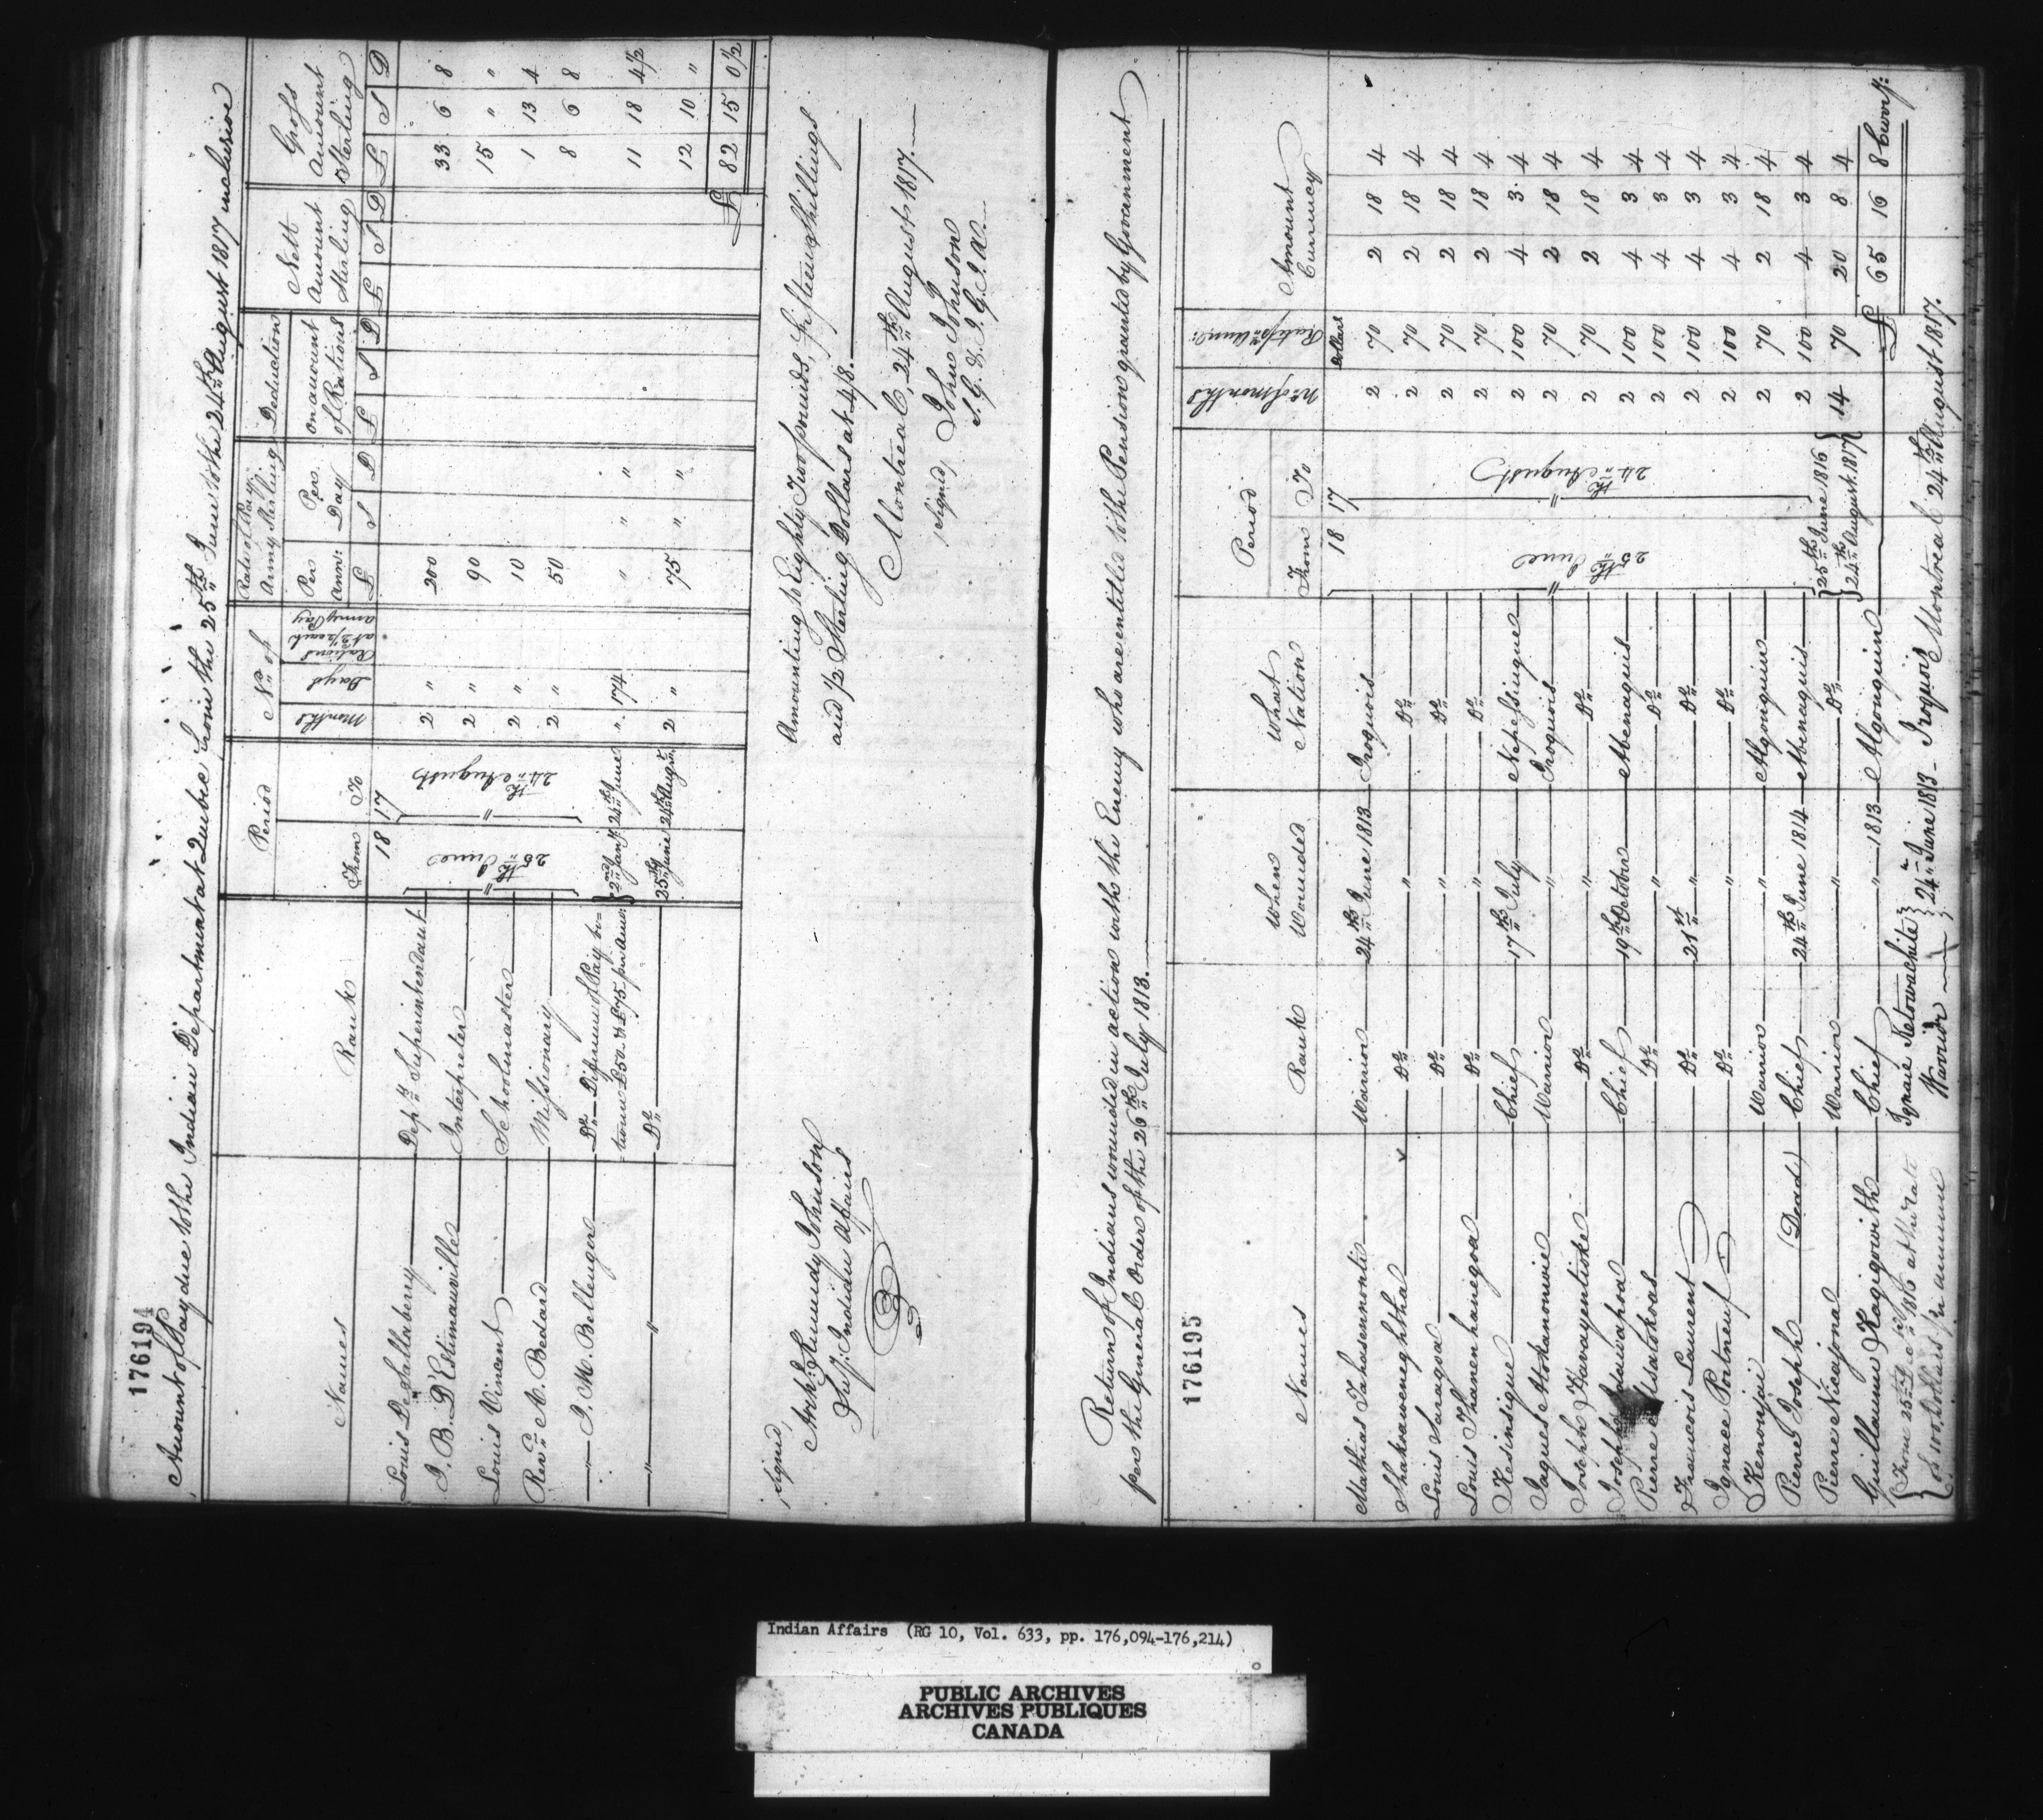 176194
Amount of Pay due to the Indian Department at Quebec from the 25th June to the 24th August 1817 inclusive
Names Rank Period No. of Rate of Pay Army Sterling Deduction Nett Amount Sterling Gross Amount Sterling
From To Months Days Rations at 2½ each army Pay Per Ann: Per Day on account of Rations
18 17 £ S D £ S D £ S D £ S D
Louis De Sallaberry Depy. Superintendant 25th June 24th August 2 " 200 33 6 8
J. B. D'Estimauville Interpreter 2 " 90 15 " "
Louis Vincent Schoolmaster 2 " 10 1 13 4
Revd. A. Bedard Missionary 2 " 50 8 6 8
" J. M. Bellenger Do. Difference of Pay be=
=tween £50 & £75 per Annum 2nd Jany. 24th June " 174 " " " 11 18 4½
" " Do. 25th June 24th August 2 " 75 " " 12 10 "
£ 82 15 0½
Amounting to Eighty Two pounds, fifteen shillings
and ½ Sterling Dollars at 4/8.
Montreal, 24th August 1817.
signed, Archd. Kennedy Johnson
Su.. Indian Affairs
(signed) John Johnson
S. G. & I. G. I. A.
Return of Indians wounded in action with the Enemy who are entitled to the Pension granted by Government
per the General Order of the 26th July 1813.
176195
Names Rank When Wounded What Nation Period No. of months Rate pr. Ann: Amount Currency
From To Dollars
18 17
Mathias Tahasennontie Warrior 24th June 1813 Iroquois 25th June 24th August 2 70 2 18 4
Shakoawenghtha Do. " Do. 2 70 2 18 4
Louis Saragoa Do. " Do. 2 70 2 18 4
Louis Thanenhanegoa Do. " Do. 2 70 2 18 4
Kesindique Chief 17th July Nepessingue 2 100 4 3 4
Jaques Atokanonwie Warrior " Iroquois 2 70 2 18 4
Joseph Karayentioske Do. " Do. 2 70 2 18 4
Joseph Chief 19th October Abenaquis 2 100 4 3 4
Pierre Msatokoas Do. " Do. 2 100 4 3 4
Francois Laurent Do. 21st " Do. 2 100 4 3 4
Ignace Portneuf Do. " Do. 2 100 4 3 4
Kenonjai Warrior " Algonquin 2 70 2 18 4
Pierre Joseph (Dead) Chief 24th June 1814 Abenaquis 2 100 4 3 4
Pierre Nicajona Warrior " Do. 25th June 1816 24th August 1817 14 70 20 8 4
Guillaume Kagigowith Chief " 1813 Algonquin £ 65 16 8 Curr'y.
From 25th 1816 at the rate
of 100 Dollars pr. annum
Ignace Ketowachite
Warrior 24th June 1813 Iroquois Montreal 24th August 1817.
Indian Affairs (RG 10, Vol. 633, pp. 176,094-176,214)
PUBLIC ARCHIVES
ARCHIVES PUBLIQUES
CANADA